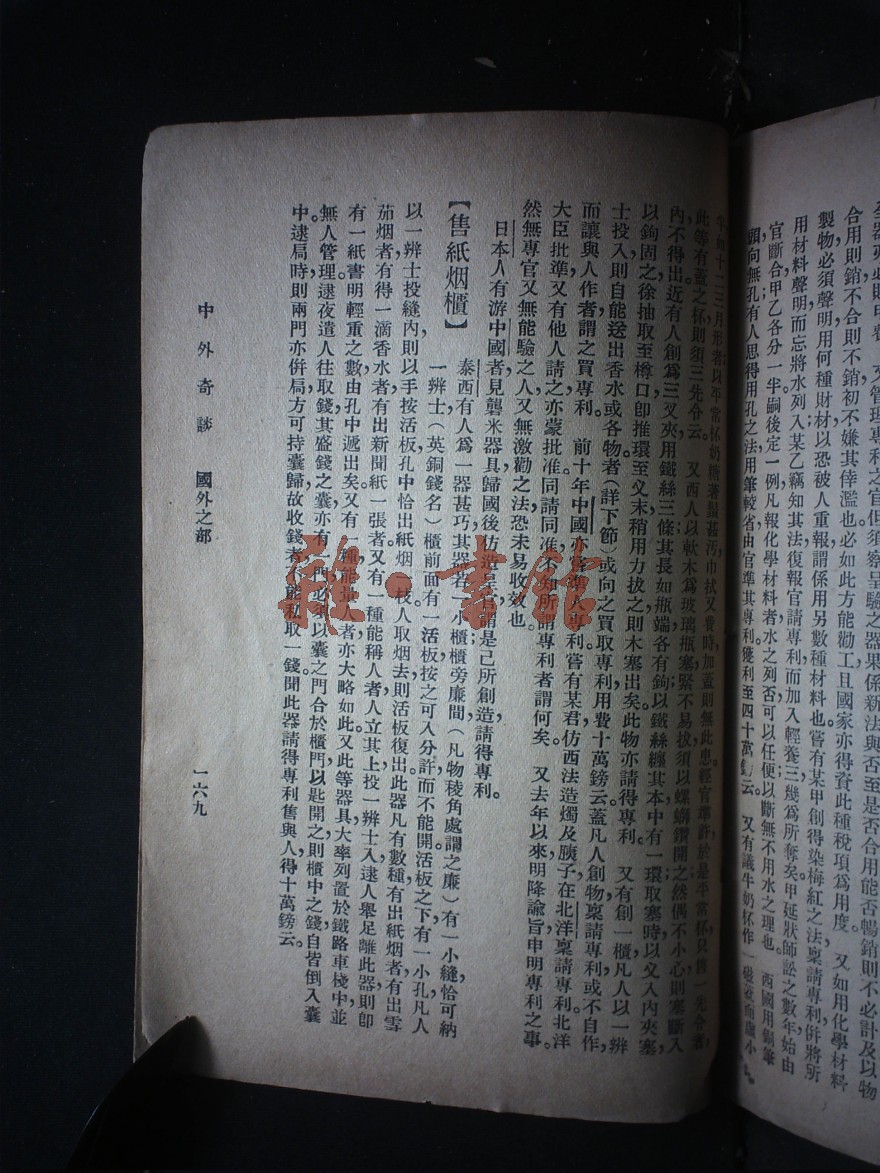 全器亦必則甲替
合用則銷不合則不銷初不嫌其倖濫也必如此方能勸工且國家亦得賚此種稅項爲用度。又如用化學材料
製物必須聲明用何種財材以恐被人重報謂係用另數種材料也嘗有某甲創得染梅紅之法稟請專利併將所
用材料聲明而忘將水列入某乙竊知其法復報官請專利而加入輕養三幾爲所奪矣甲延狀師訟之數年始由
官斷合甲乙各分一半嗣後定一例凡報化學材料者水之列否可以任便以斷無不用水之理也。西國用鋼筆
頭向無孔有人思得用孔之法用筆較省由官準其專利獲利至四十萬云 又有議牛奶杯作一
此等有蓋之杯則須三先令云。又西人以軟木爲玻璃瓶塞緊不易拔須以螺螄鑽開之然偶不小心則塞斷入
內不得出近有人創爲三叉夾用鐵絲三條其長如瓶端各有鉤以鐵絲纏其本中有一環取塞時以叉入內夾塞
以鉤固之徐抽取至樽口卽推環至叉末稍用力拔之則木塞出矣此物亦請得專利。又有創一櫃凡人以一辨
士投入則自能送出香水或各物者(詳下節)或向之買取專利用費十萬鎊云蓋凡人創物稟請專利或不自作,
而讓與人作者謂之買專利。前十年中國亦嘗準人專利嘗有某君仿西法造燭及胰子在北洋稟請專利北洋
大臣批準又有他人請之亦蒙批准同請同准不知所請專利者謂何矣。又去年以來明降諭旨申明專利之事
然無專官又無能驗之人又無激勸之法恐未易收效也。
日本人有游中國者見礱米器具歸國後仿造呈官謂是己所創造請得專利。
【售紙烟櫃】 泰西有人爲一器甚巧其器若一小櫃櫃旁廉間(凡物稜角處謂之廉)有一小縫恰可納
一辨士(英銅錢名)櫃前面有一活板按之可入分許而不能開活板之下有一小孔凡人
以一辨士投縫內則以手按活板孔中恰出紙烟一枝人取烟去則活板復出此器凡有數種有出紙烟者有出雪
茄烟者有得一滴香水者有出新聞紙一張者又有一種能稱人者人立其上投一辨士入逮人舉足離此器則卽
有一紙書明輕重之數由孔中遞出矣又有一種能量者亦大略如此又此等器具大率列置於鐵路車棧中並
無人管理逮夜遣人往取錢其盛錢之囊亦有一門必須以囊之門合於櫃門以匙開之則櫃中之錢自皆倒入囊
中逮扃時則兩門亦併扃方可持囊歸故收錢者不能私取一錢聞此器請得專利售與人得十萬鎊云。
中外奇談 國外之部 一六九
雅·書館